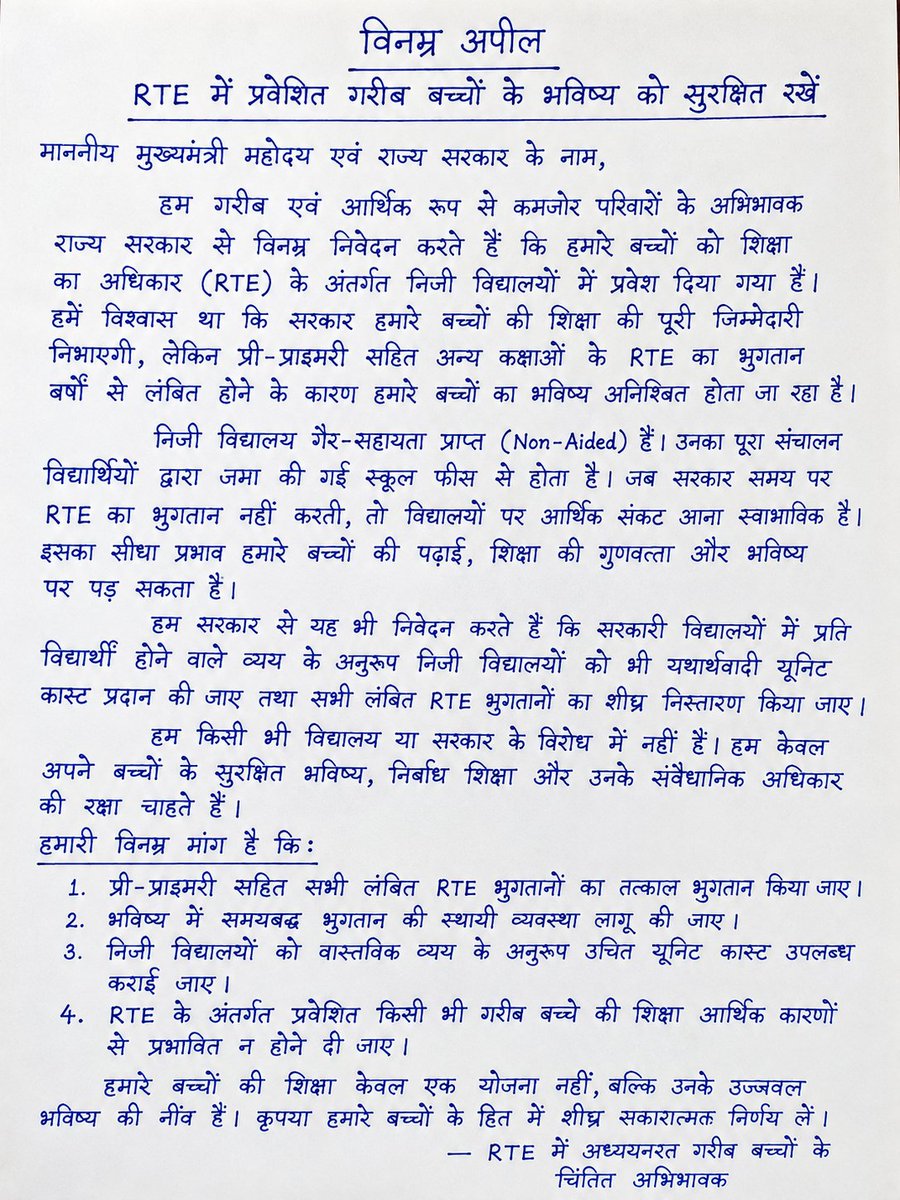 विनम्र अपील
RTE में प्रवेशित गरीब बच्चों के भविष्य को सुरक्षित रखें
माननीय मुख्यमंत्री महोदय एवं राज्य सरकार के नाम,
हम गरीब एवं आर्थिक रूप से कमजोर परिवारों के अभिभावक
राज्य सरकार से विनम्र निवेदन करते हैं कि हमारे बच्चों को शिक्षा
का अधिकार (RTE) के अंतर्गत निजी विद्यालयों में प्रवेश दिया गया हैं।
हमें विश्वास था कि सरकार हमारे बच्चों की शिक्षा की पूरी जिम्मेदारी
निभाएगी, लेकिन प्री-प्राइमरी सहित अन्य कक्षाओं के RTE का भुगतान
बर्षों से लंबित होने के कारण हमारे बच्चों का भविष्य अनिश्बित होता जा रहा है।
निजी विद्यालय गैर-सहायता प्राप्त (Non-Aided) हैं। उनका पूरा संचालन
विद्यार्थियों द्वारा जमा की गई स्कूल फीस से होता है। जब सरकार समय पर
RTE का भुगतान नहीं करती, तो विद्यालयों पर आर्थिक संकट आना स्वाभाविक है।
इसका सीधा प्रभाव हमारे बच्चों की पढ़ाई, शिक्षा की गुणवत्ता और भविष्य
पर पड़ सकता हैं।
हम सरकार से यह भी निवेदन करते हैं कि सरकारी विद्यालयों में प्रति
विद्यार्थी होने वाले व्यय के अनुरूप निजी विद्यालयों को भी यथार्थवादी यूनिट
कास्ट प्रदान की जाए तथा सभी लंबित RTE भुगतानों का शीघ्र निस्तारण किया जाए।
हम किसी भी विद्यालय या सरकार के विरोध में नहीं हैं। हम केवल
अपने बच्चों के सुरक्षित भविष्य, निर्बाध शिक्षा और उनके संवैधानिक अधिकार
की रक्षा चाहते हैं।
हमारी विनम्र मांग है कि:
1. प्री-प्राइमरी सहित सभी लंबित RTE भुगतानों का तत्काल भुगतान किया जाए।
2. भविष्य में समयबद्ध भुगतान की स्थायी व्यवस्था लागू की जाए।
3. निजी विद्यालयों को वास्तविक व्यय के अनुरूप उचित यूनिट कास्ट उपलब्ध
कराई जाए।
4. RTE के अंतर्गत प्रवेशित किसी भी गरीब बच्चे की शिक्षा आर्थिक कारणों
से प्रभावित न होने दी जाए।
हमारे बच्चों की शिक्षा केवल एक योजना नहीं, बल्कि उनके उज्जवल
भविष्य की नींव हैं। कृपया हमारे बच्चों के हित में शीघ्र सकारात्मक निर्णय लें।
— RTE में अध्ययनरत गरीब बच्चों के
चिंतित अभिभावक